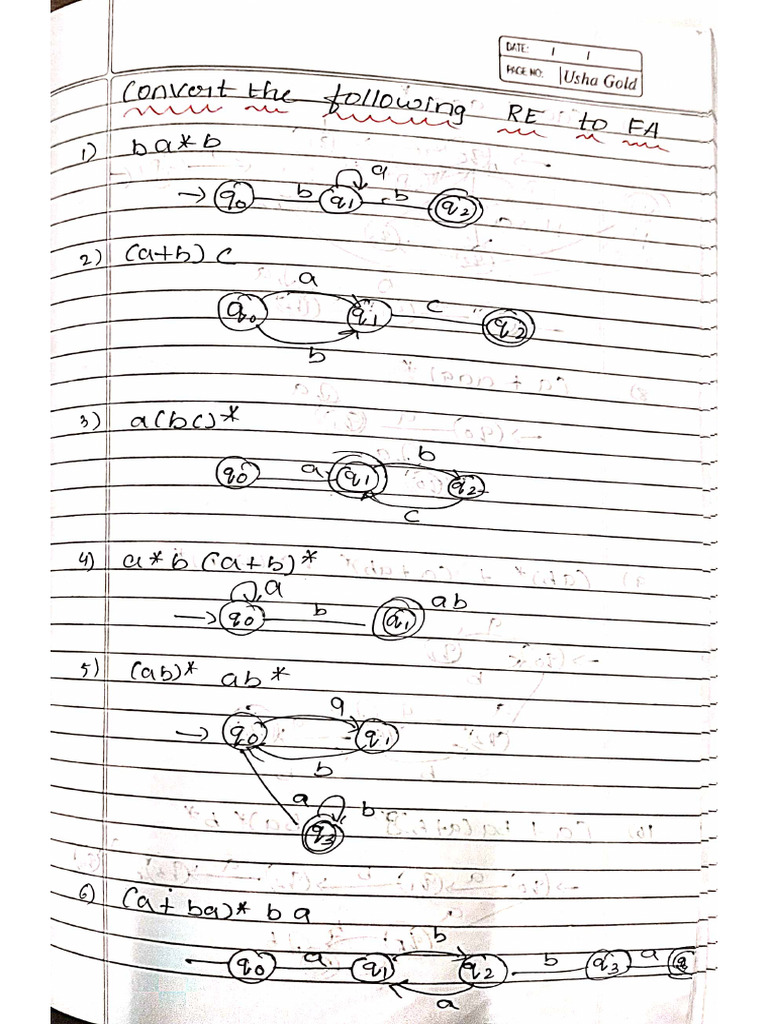 DATE: / /
PAGE NO: Usha Gold
Convert the following RE to FA
1) ba*b
a
q0 b q1 b q2
2) (a+b) c
a
q0 q1 c q2
b
3) a(bc)*
b
q0 a q1 q2
c
4) a*b (a+b)*
a
q0 b q1 ab
5) (ab)* ab*
a
q0 q1
b
a b
q3
6) (a+ba)* ba
b
q0 a q1 q2 b q3 a q
a